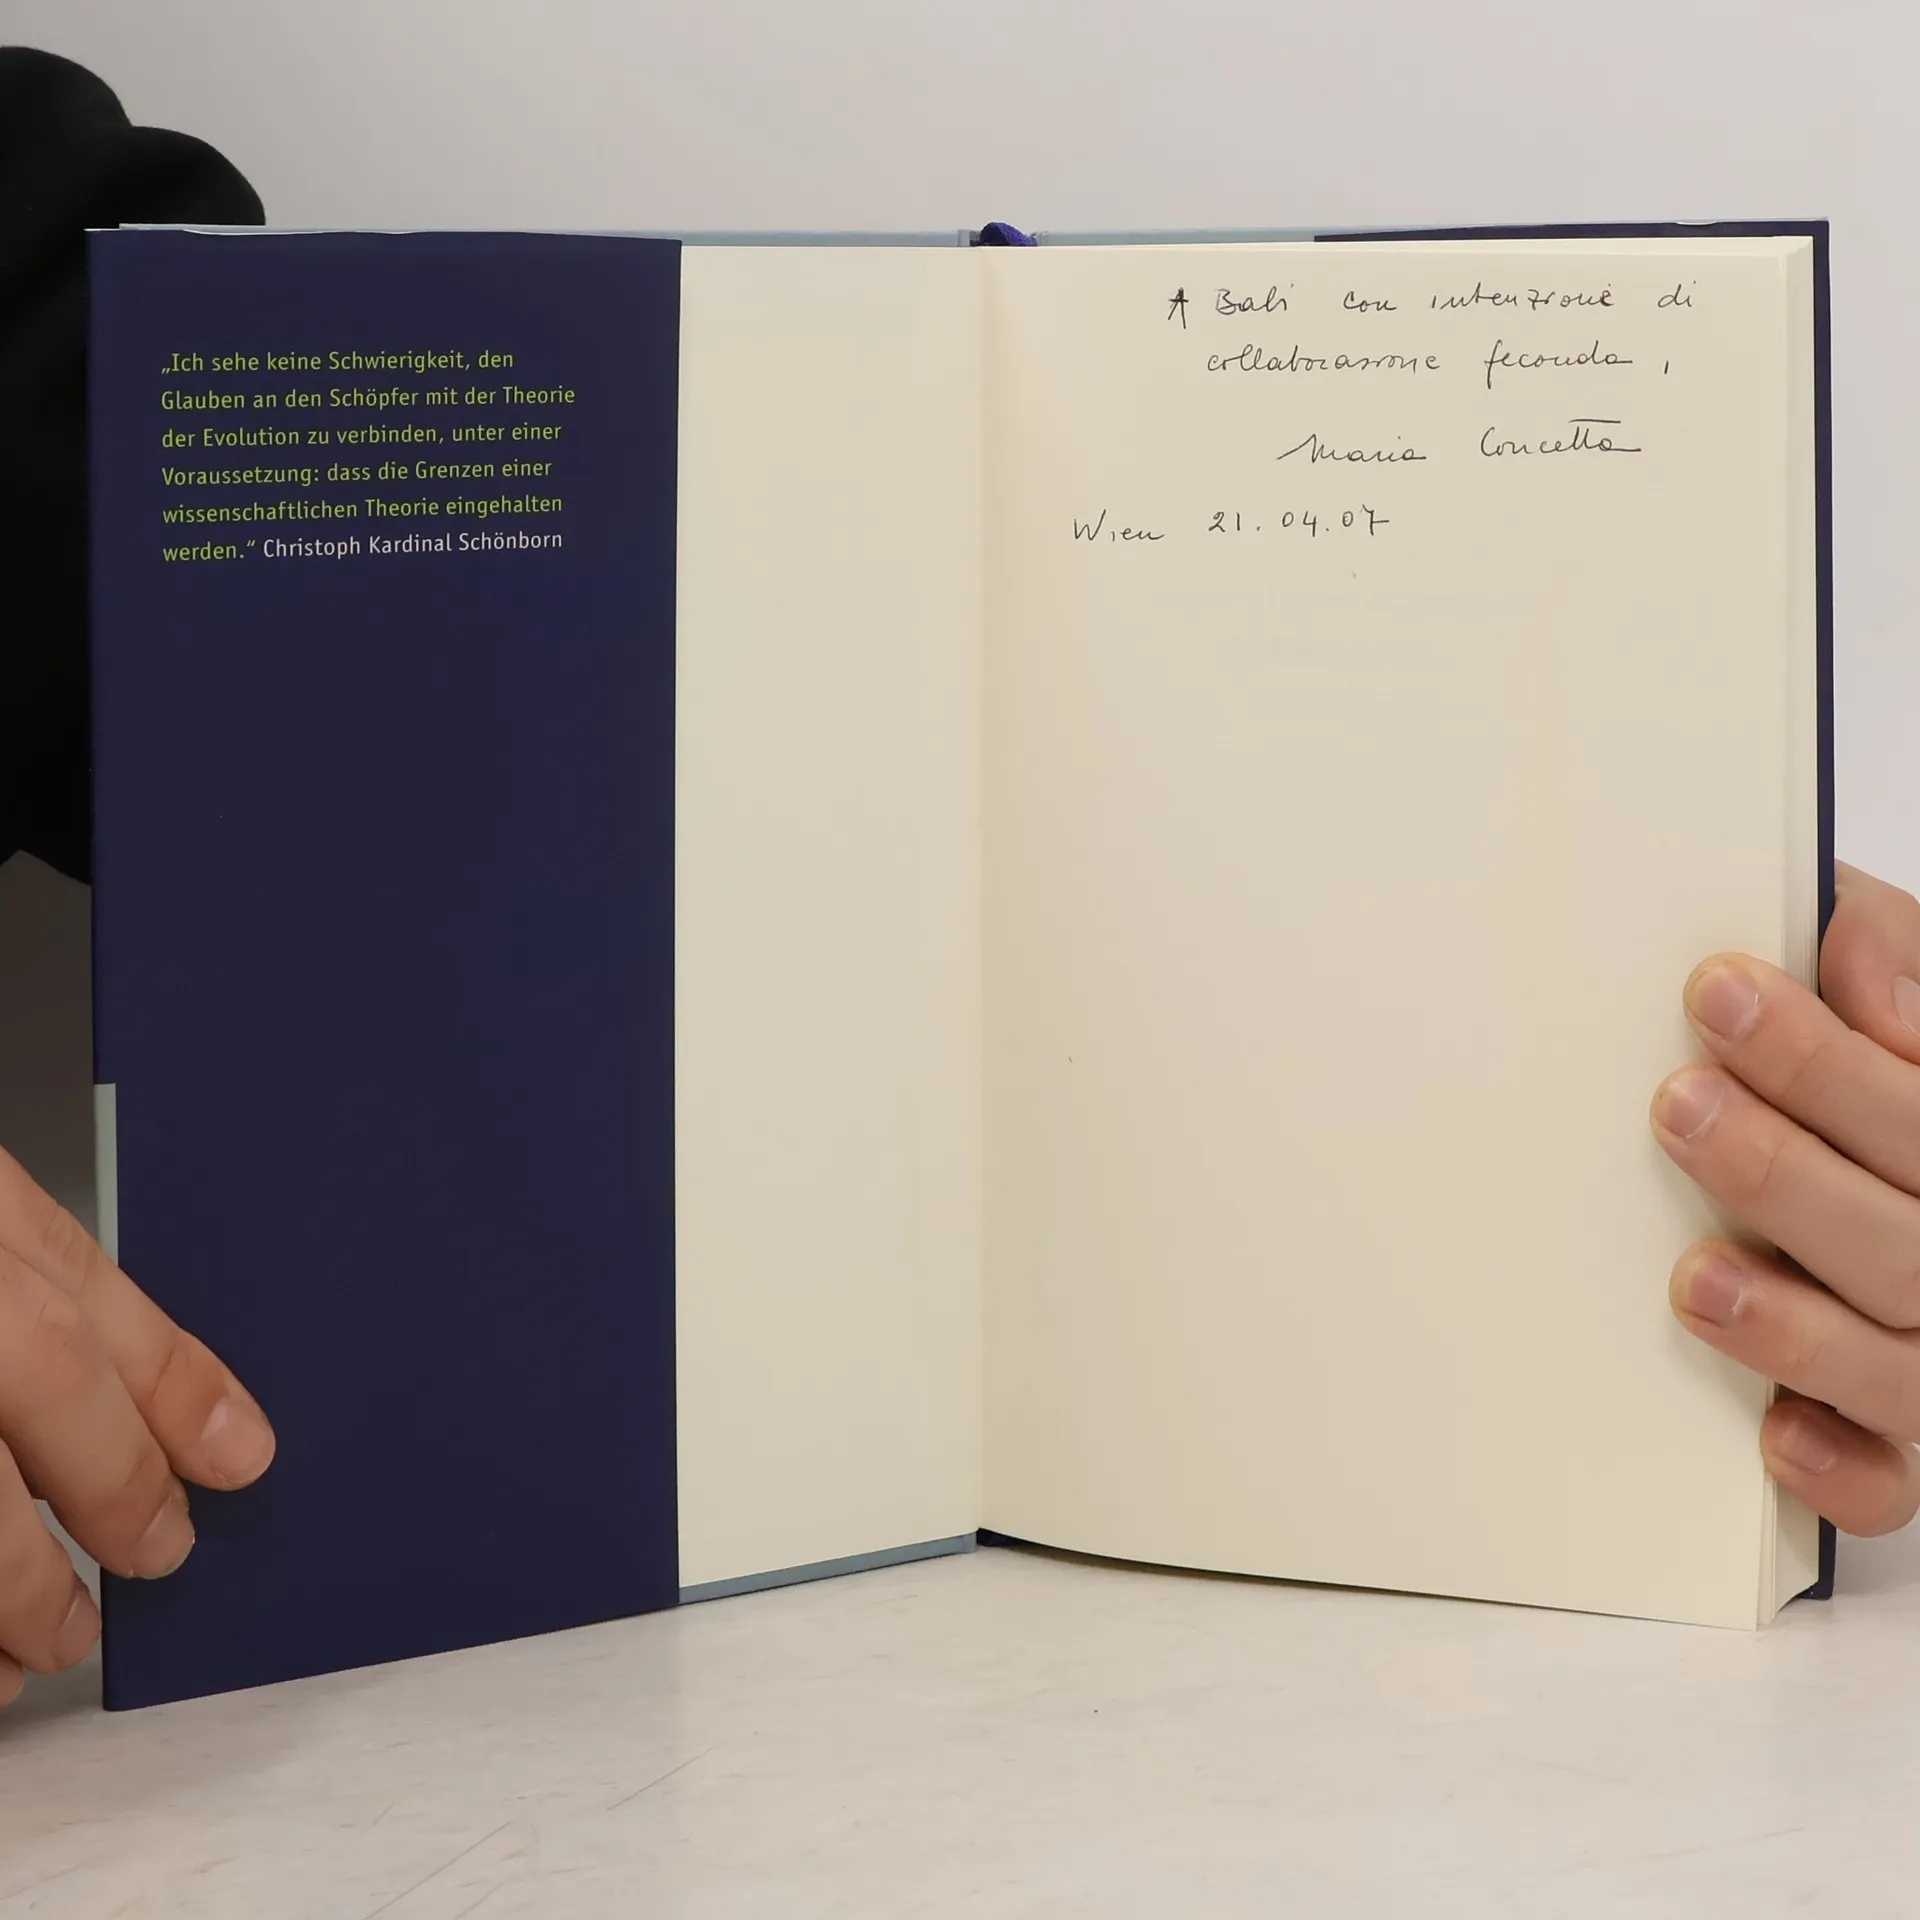 „Ich sehe keine Schwierigkeit, den
Glauben an den Schöpfer mit der Theorie
der Evolution zu verbinden, unter einer
Voraussetzung: dass die Grenzen einer
wissenschaftlichen Theorie eingehalten
werden.“ Christoph Kardinal Schönborn
A Bali con intenzione di
collaborazione feconda,
Maria Concetta
Wien 21.04.07